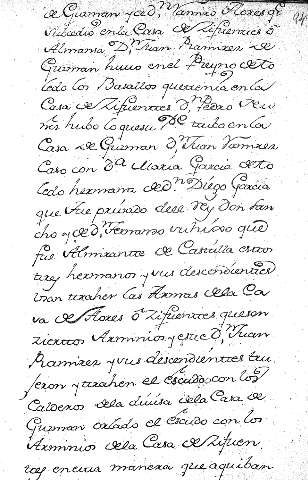 de Guzman y de Dn Ramiro Flores q
Subcedio en la Casa de Zifuentes o
Almansa Dn Juan Ramirez de
Guzman huuo en el Reyno de To
ledo los Basallos que tenia en la
Casa de Zifuentes dn Pedro Nu
ñes hubo lo que su Pe tubo en la
Casa de Guzman dn Juan Ramires
Caso con Da Maria Garcia de To
ledo hermana de dn Diego Garcia
que fue priuado de el Rey Don San
cho y de dn Fernando su hijo q
fue Almirante de Castilla estos
tres hermanos y sus descendientes
van traher las Armas de la Ca
sa de Flores o Zifuentes que son
ziertos Arminios y este dn Juan
Ramirez y sus descendientes tru
jeron y trahen el escudo con los
Calderos de la diuisa de la Casa de
Guzman orlado el escudo con los
Arminios de la Casa de Zifuen
tes en cuia manera que aqui ban